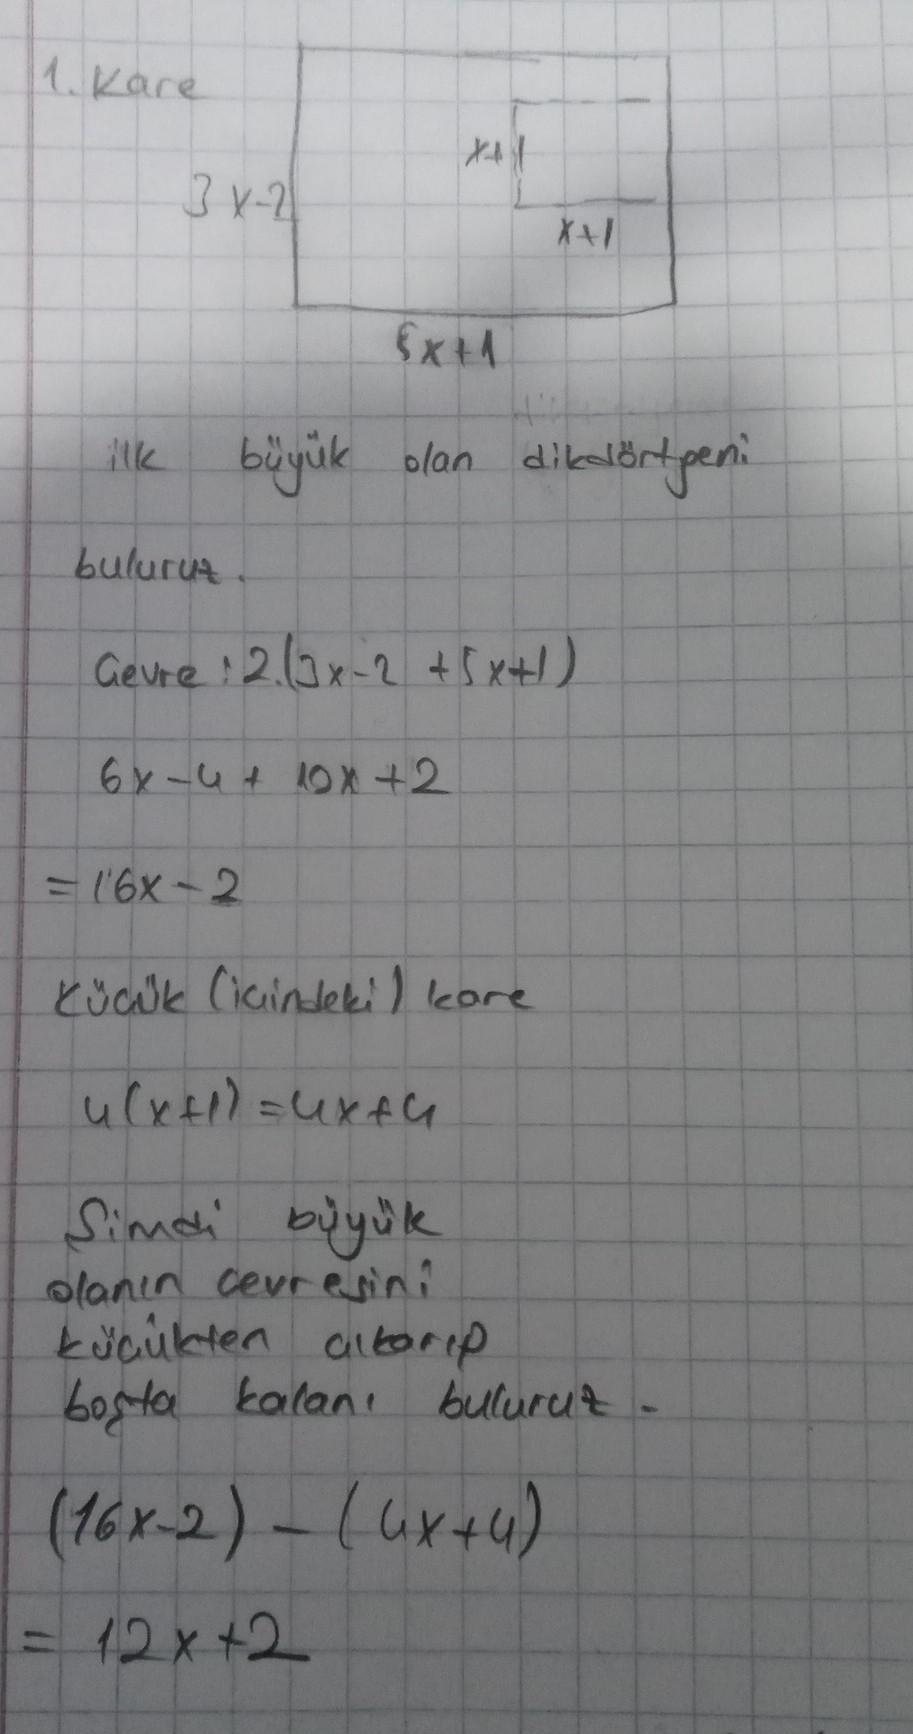 1. Kare
x+1
3x-2
x+1
5x+1
ilk büyük olan dikdörtgeni
buluruz.
Çevre : 2.(3x-2 +5x+1)
6x-4 + 10x +2
= 16x - 2
Küçük (içindeki) kare
4(x+1) = 4x+4
Şimdi büyük
olanın çevresini
küçükten çıkarıp
boşta kalanı buluruz.
(16x-2) - (4x+4)
= 12x+2